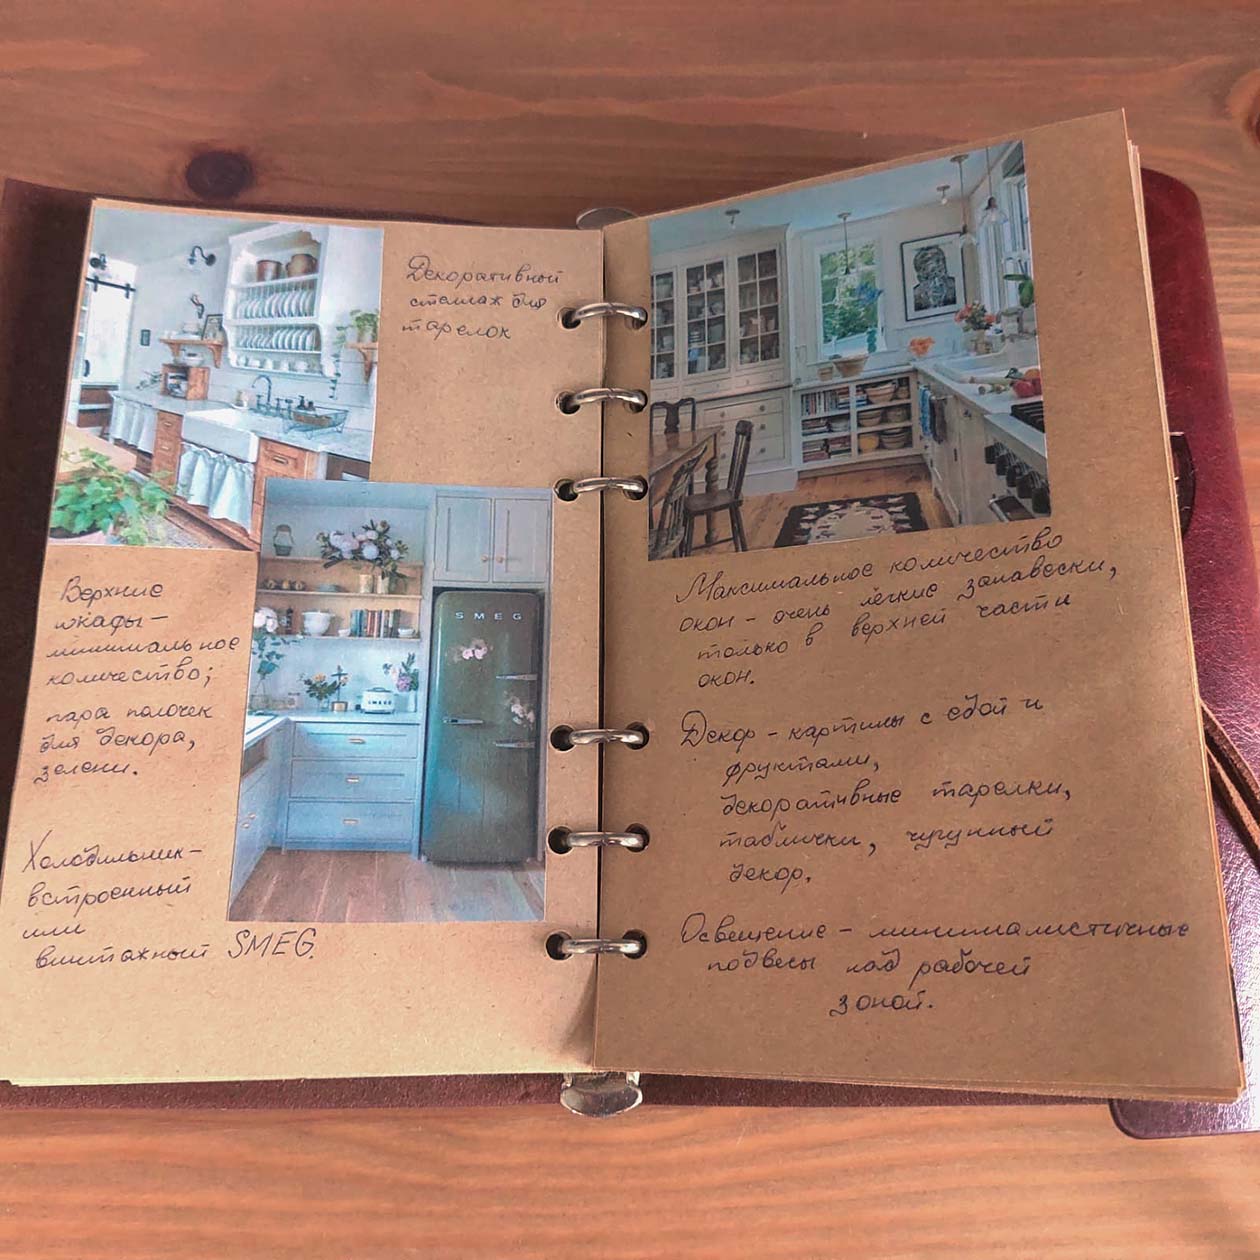 Декоративный
стеллаж для
тарелок
Верхние
шкафы-
минимальное
количество;
пара полочек
для декора,
зелени.
SMEG
Холодильник-
встроенный
или
винтажный SMEG.
Максимальное количество
окон - очень лёгкие занавески,
только в верхней части
окон.
Декор - картины с едой и
фруктами,
декоративные тарелки,
таблички, чугунный
декор.
Освещение - минималистичные
подвесы над рабочей
зоной.